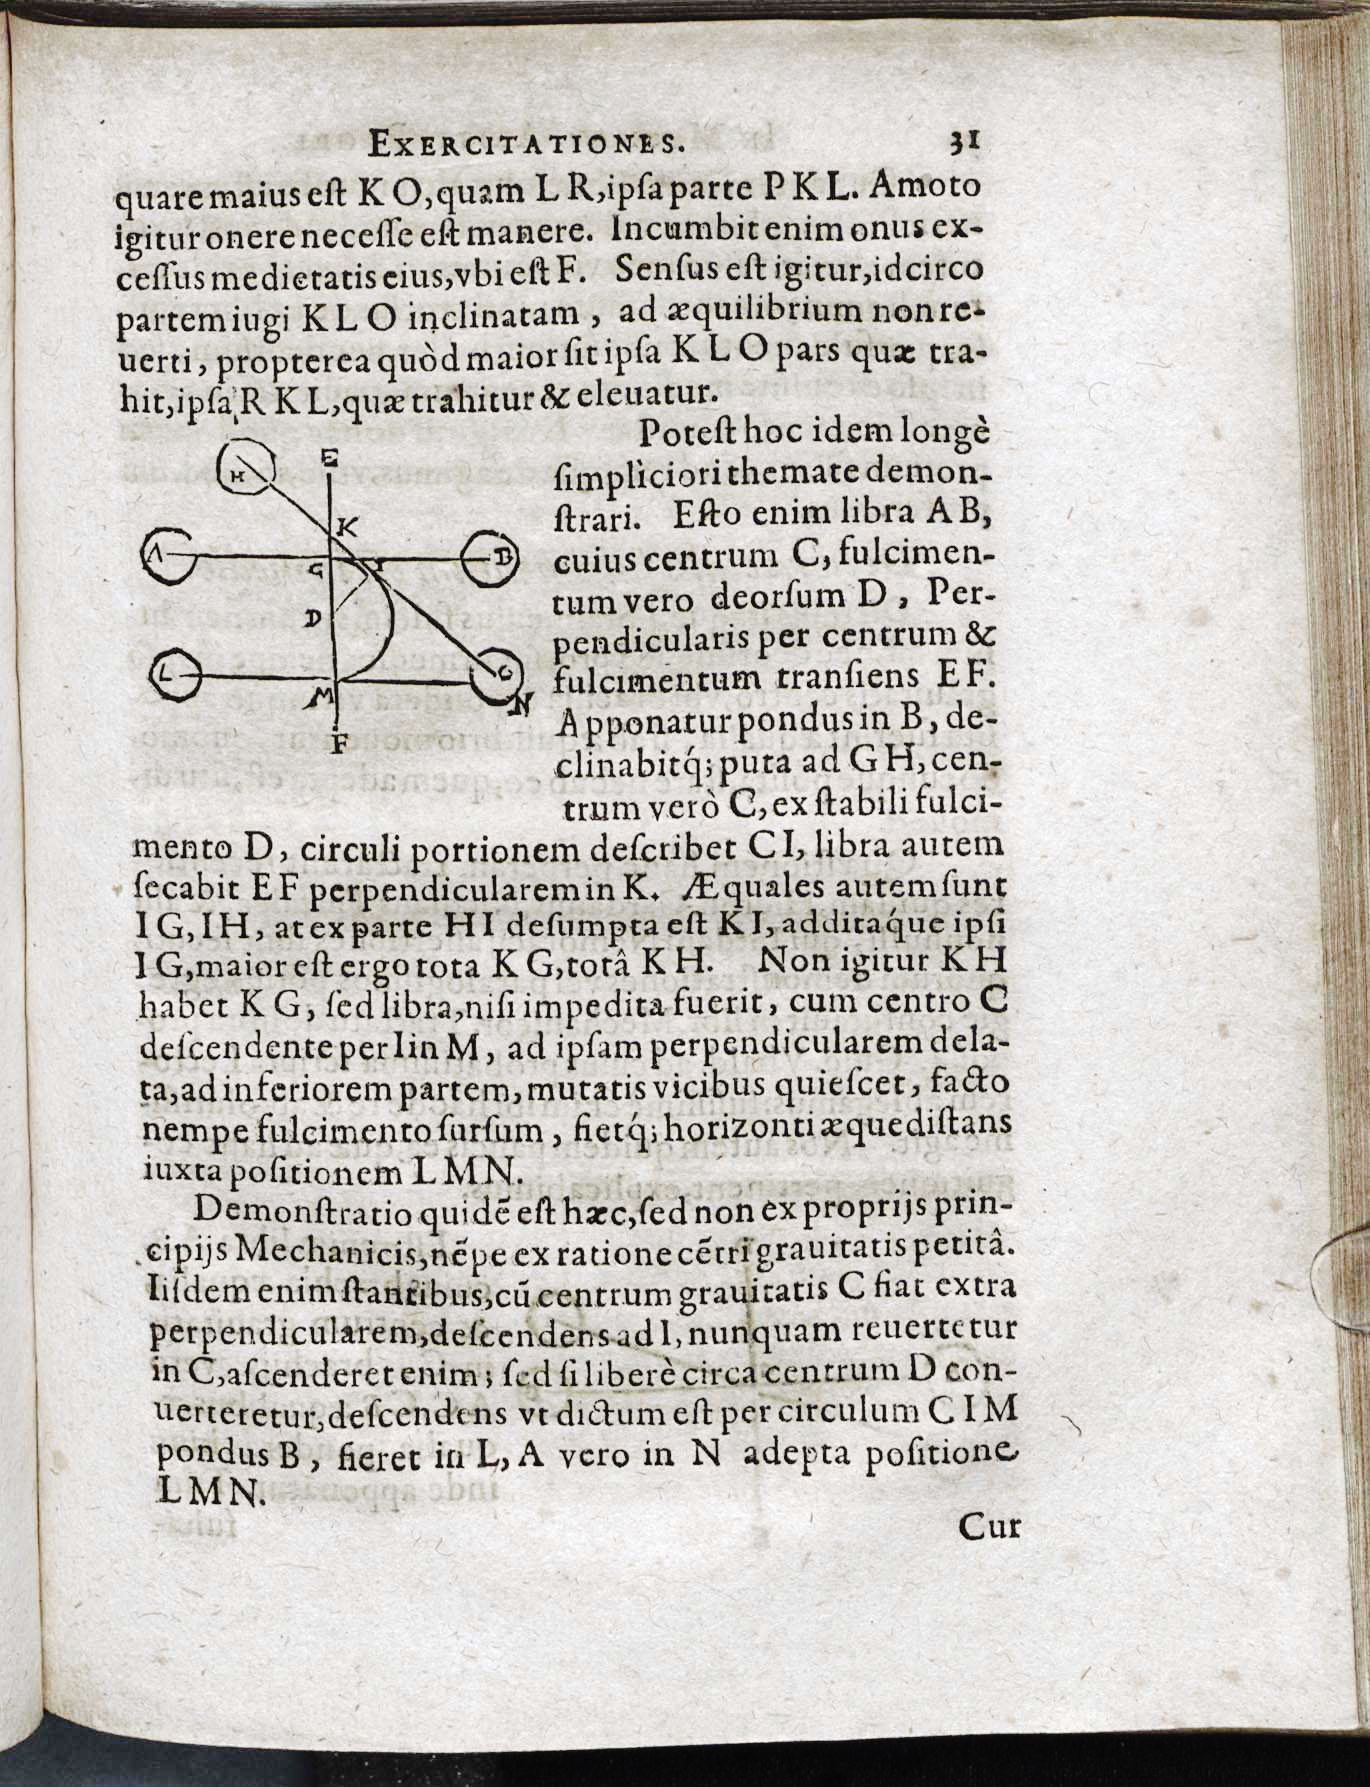 EXERCITATIONES. 31
quare maius eſt K O, quam L R, ipſa parte P K L. Amoto
igitur onere neceſſe eſt manere. Incumbit enim onus ex-
ceſſus medietatis eius, vbi eſt F. Senſus eſt igitur, idcirco
partem iugi K L O inclinatam, ad æquilibrium non re-
uerti, propterea quòd maior ſit ipſa K L O pars quæ tra-
hit, ipſa R K L, quæ trahitur & eleuatur.
Poteſt hoc idem longè
ſimplìciori themate demon-
ſtrari. Eſto enim libra A B,
cuius centrum C, fulcimen-
tum vero deorſum D, Per-
pendicularis per centrum &
fulcimentum tranſiens E F.
Apponatur pondus in B, de-
clinabitq́; puta ad G H, cen-
trum verò C, ex ſtabili fulci-
H
E
K
A
B
C
I
D
L
G
M
N
F
mento D, circuli portionem deſcribet C I, libra autem
ſecabit E F perpendicularem in K. Æquales autem ſunt
I G, I H, at ex parte H I deſumpta eſt K I, additaq́ue ipſi
I G, maior eſt ergo tota K G, totâ K H. Non igitur K H
habet K G, ſed libra, niſi impedita fuerit, cum centro C
deſcendente per I in M, ad ipſam perpendicularem dela-
ta, ad inferiorem partem, mutatis vicibus quieſcet, facto
nempe fulcimento ſurſum, fietq́; horizonti æquediſtans
iuxta poſitionem L M N.
Demonſtratio quidẽ eſt hæc, ſed non ex proprijs prin-
cipijs Mechanicis, nẽpe ex ratione cẽtri grauitatis petitâ.
Iiſdem enim ſtantibus, cũ centrum grauitatis C fiat extra
perpendicularem, deſcendens ad I, nunquam reuertetur
in C, aſcenderet enim; ſed ſi liberè circa centrum D con-
uerteretur, deſcendens vt dictum eſt per circulum C I M
pondus B, fieret in L, A vero in N adepta poſitione
L M N.
Cur